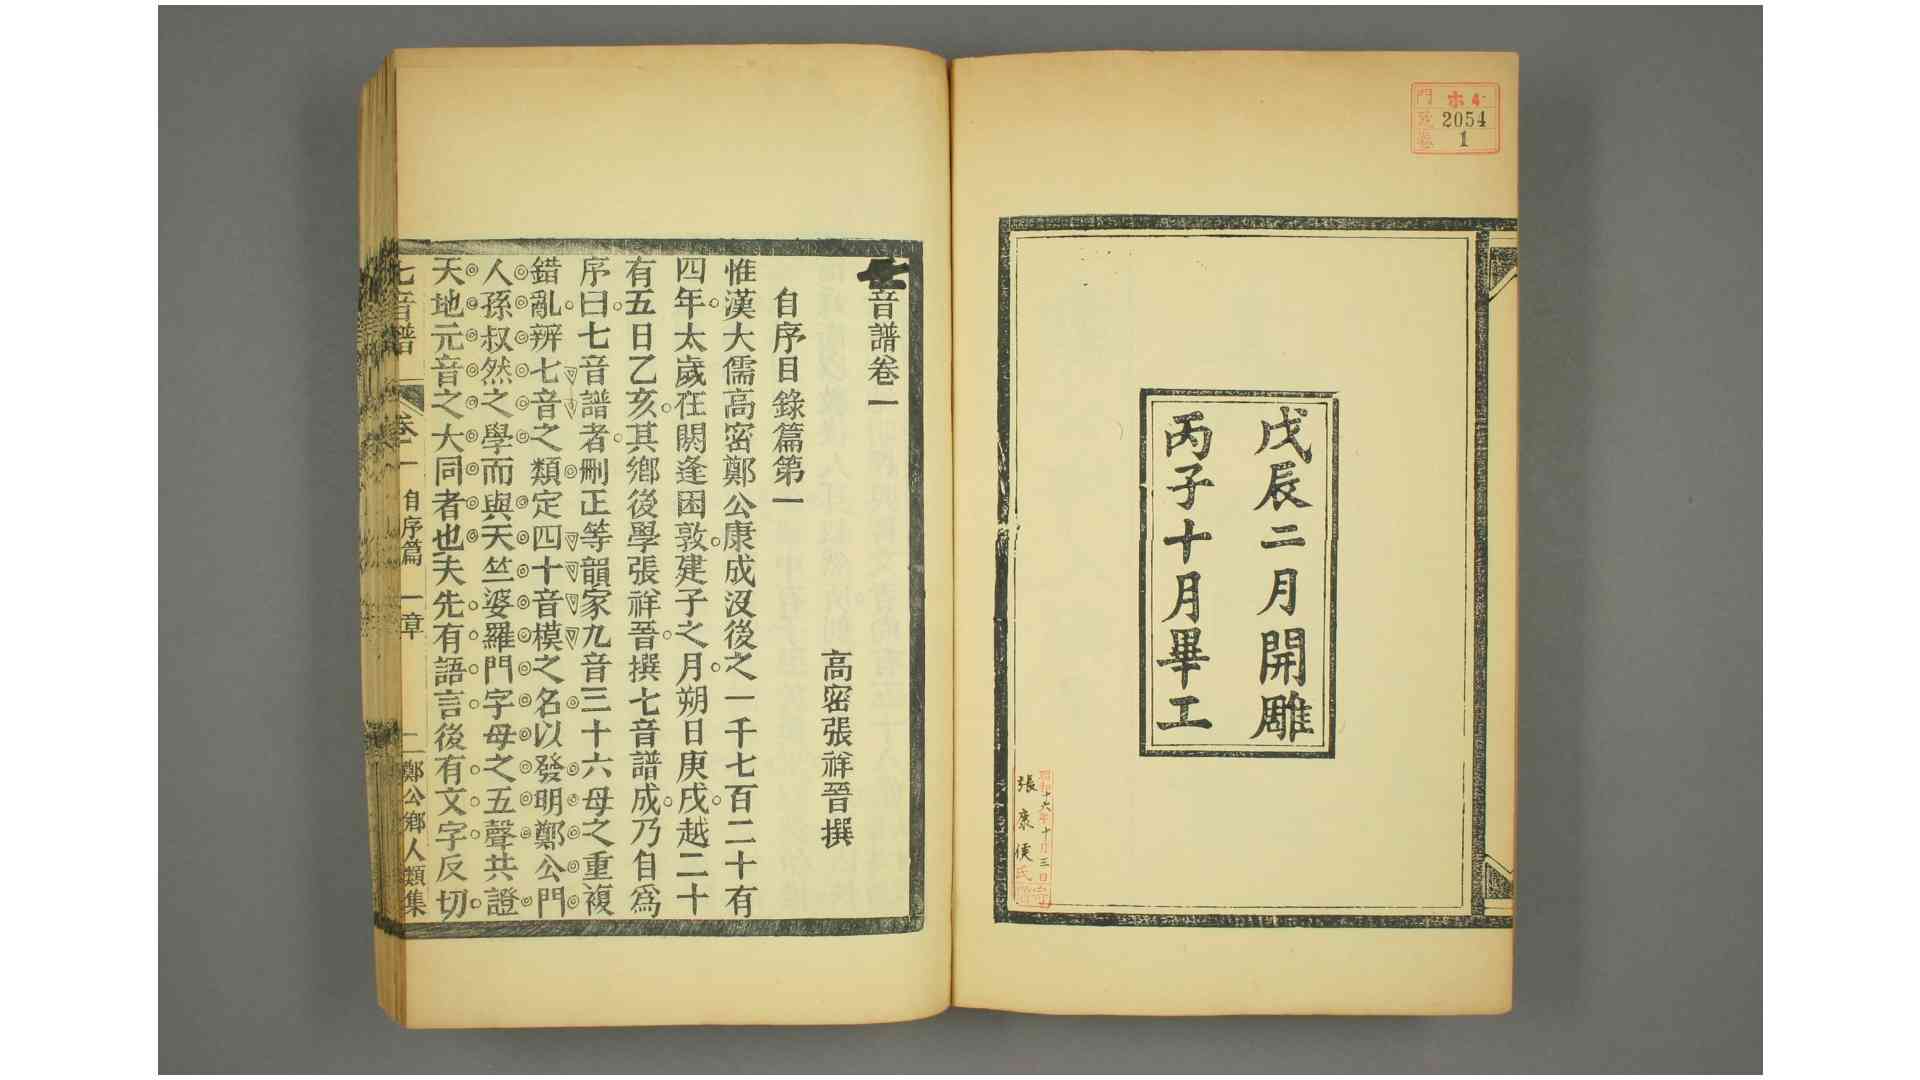 ホ4
門
2054
號
1
卷
戊辰二月開雕
丙子十月畢工
昭和十六年十月三日
張康侯氏寄贈
七音譜卷一
高密張祥晉撰
自序目錄篇第一
惟漢大儒高密鄭公康成沒後之一千七百二十有
四年太歲在閼逢困敦建子之月朔日庚戌越二十
有五日乙亥其鄉後學張祥晉撰七音譜成乃自爲
序曰七音譜者删正等韻家九音三十六母之重複
錯亂辨七音之類定四十音模之名以發明鄭公門
人孫叔然之學而與天竺婆羅門字母之五聲共證
天地元音之大同者也夫先有語言後有文字反切
七音譜 卷一 自序篇 一章 二 鄭公鄉人類集